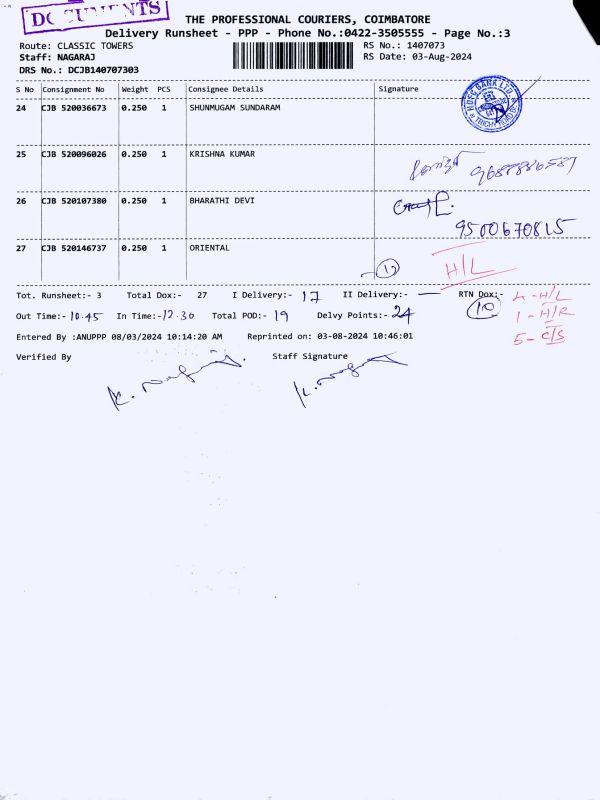 DOCUMENTS
THE PROFESSIONAL COURIERS, COIMBATORE
Delivery Runsheet - PPP - Phone No.:0422-3505555 - Page No.:3
Route: CLASSIC TOWERS RS No.: 1407073
Staff: NAGARAJ RS Date: 03-Aug-2024
DRS No.: DCJB140707303
S No Consignment No Weight PCS Consignee Details Signature
24 CJB 520036673 0.250 1 SHUNMUGAM SUNDARAM
HDFC BANK LTD.
25 CJB 520096026 0.250 1 KRISHNA KUMAR
26 CJB 520107380 0.250 1 BHARATHI DEVI
9500670815
27 CJB 520146737 0.250 1 ORIENTAL
H/L
Tot. Runsheet:- 3 Total Dox:- 27 I Delivery:- 17 II Delivery:- — RTN Dox:- 10
4 - H/L
1 - H/R
5 - C/S
Out Time:- 10.45 In Time:- 12.30 Total POD:- 19 Delvy Points:- 24
Entered By :ANUPPP 08/03/2024 10:14:20 AM Reprinted on: 03-08-2024 10:46:01
Verified By Staff Signature